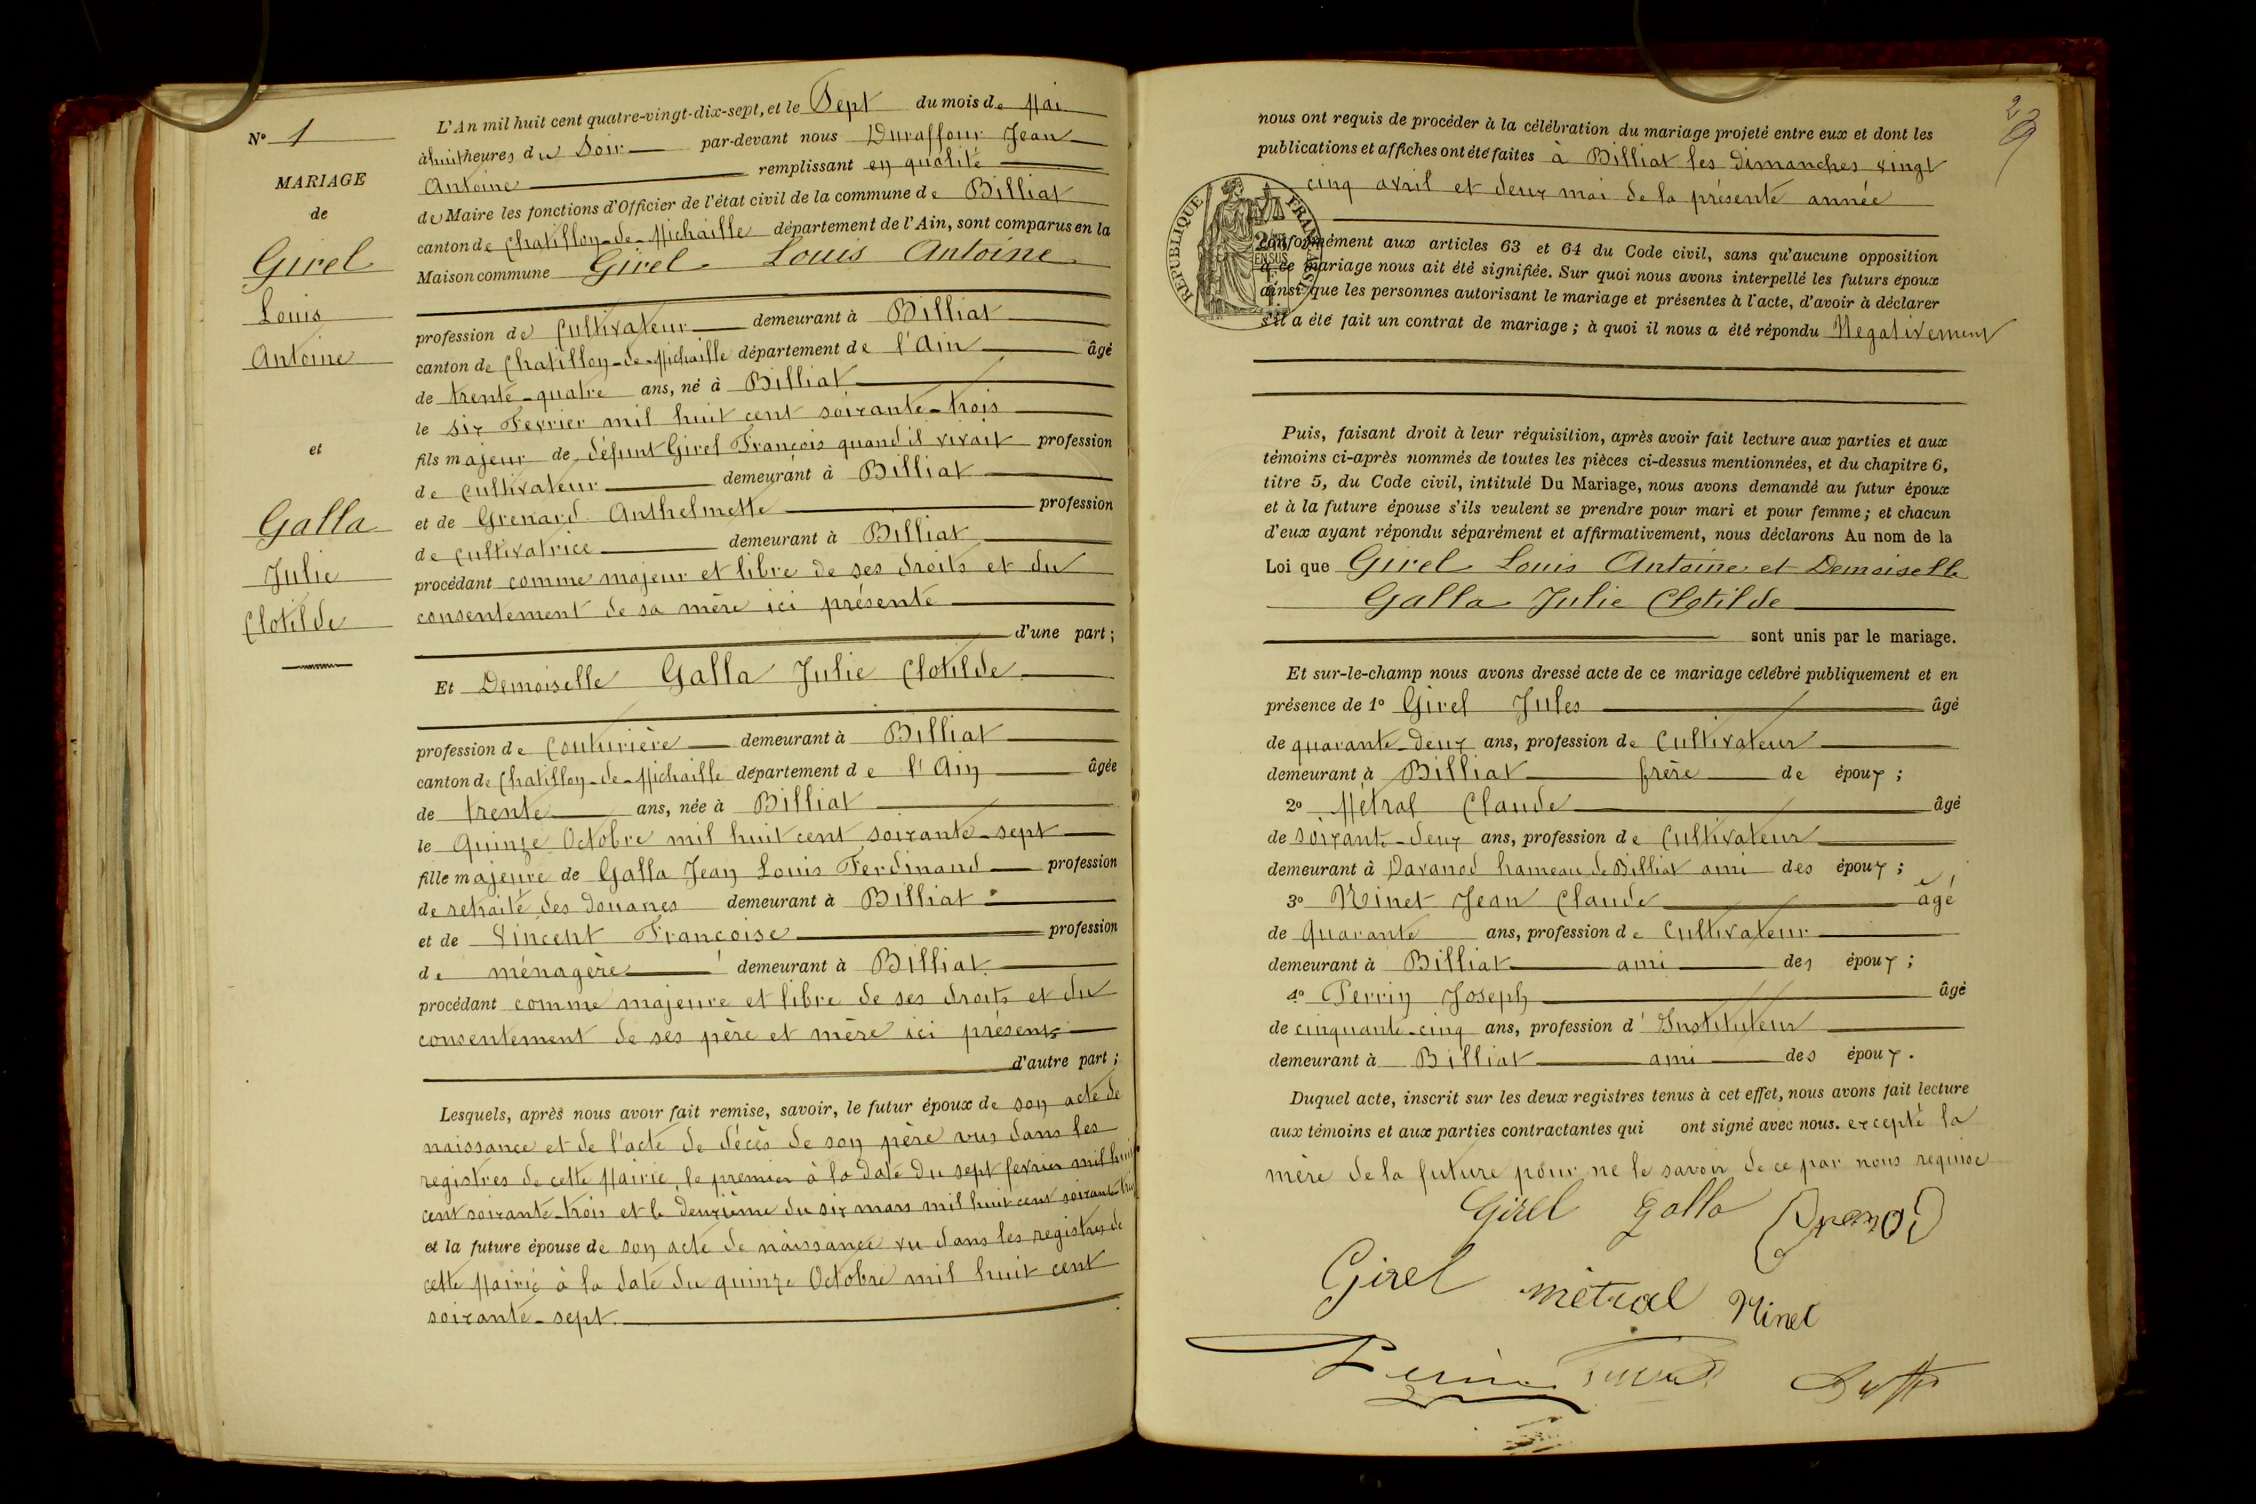 N° 1
MARIAGE
de
Girel
Louis
Antoine
et
Galla
Julie
Clotilde
L'An mil huit cent quatre-vingt-dix-sept, et le Sept du mois de Mai
à huit heures du Soir par-devant nous Duraffour Jean
Antoine remplissant en qualité
de Maire les fonctions d'Officier de l'état civil de la commune de Billiat
canton de Chatillon-de-Michaille département de l'Ain, sont comparus en la
Maison commune Girel Louis Antoine
profession de Cultivateur demeurant à Billiat
canton de Chatillon-de-Michaille département de l'Ain âgé
de trente-quatre ans, né à Billiat
le six Fevrier mil huit cent soixante-trois
fils majeur de défunt Girel François quand il vivait profession
de cultivateur demeurant à Billiat
et de Grenard Anthelmette profession
de cultivatrice demeurant à Billiat
procédant comme majeur et libre de ses droits et du
consentement de sa mère ici présente
d'une part;
Et Demoiselle Galla Julie Clotilde
profession de Couturière demeurant à Billiat
canton de Chatillon-de-Michaille département de l'Ain âgée
de trente ans, née à Billiat
le quinze Octobre mil huit cent soixante-sept
fille majeure de Galla Jean Louis Ferdinand profession
de retraité des douanes demeurant à Billiat
et de Vincent Françoise profession
de ménagère demeurant à Billiat
procédant comme majeure et libre de ses droits et du
consentement de ses père et mère ici présents
d'autre part;
Lesquels, après nous avoir fait remise, savoir, le futur époux de son acte de
naissance et de l'acte de décès de son père vus dans les
registres de cette Mairie, le premier à la date du sept fevrier mil huit
cent soixante-trois et le deuxième du six mars mil huit cent soixante-trois
et la future épouse de son acte de naissance vu dans les registres de
cette Mairie à la date du quinze Octobre mil huit cent
soixante-sept.
29
nous ont requis de procéder à la célébration du mariage projeté entre eux et dont les
publications et affiches ont été faites à Billiat les dimanches vingt
cinq avril et deux mai de la présente année
RÉPUBLIQUE FRANÇAISE
conformément aux articles 63 et 64 du Code civil, sans qu'aucune opposition
à ce mariage nous ait été signifiée. Sur quoi nous avons interpellé les futurs époux
ainsi que les personnes autorisant le mariage et présentes à l'acte, d'avoir à déclarer
s'il a été fait un contrat de mariage; à quoi il nous a été répondu Negativement
Puis, faisant droit à leur réquisition, après avoir fait lecture aux parties et aux
témoins ci-après nommés de toutes les pièces ci-dessus mentionnées, et du chapitre 6,
titre 5, du Code civil, intitulé Du Mariage, nous avons demandé au futur époux
et à la future épouse s'ils veulent se prendre pour mari et pour femme; et chacun
d'eux ayant répondu séparément et affirmativement, nous déclarons Au nom de la
Loi que Girel Louis Antoine et Demoiselle
Galla Julie Clotilde
sont unis par le mariage.
Et sur-le-champ nous avons dressé acte de ce mariage célébré publiquement et en
présence de 1° Girel Jules âgé
de quarante-deux ans, profession de Cultivateur
demeurant à Billiat frère de époux;
2° Métral Claude âgé
de soixante-deux ans, profession de Cultivateur
demeurant à Davanod hameau de Billiat ami des époux;
3° Ninet Jean Claude âgé
de Quarante ans, profession de Cultivateur
demeurant à Billiat ami des époux;
4° Perrin Joseph âgé
de cinquante-cinq ans, profession d'Instituteur
demeurant à Billiat ami des époux.
Duquel acte, inscrit sur les deux registres tenus à cet effet, nous avons fait lecture
aux témoins et aux parties contractantes qui ont signé avec nous. excepté la
mère de la future pour ne le savoir de ce par nous requise
Girel Galla Grenard
Girel métral Ninet
Perrin